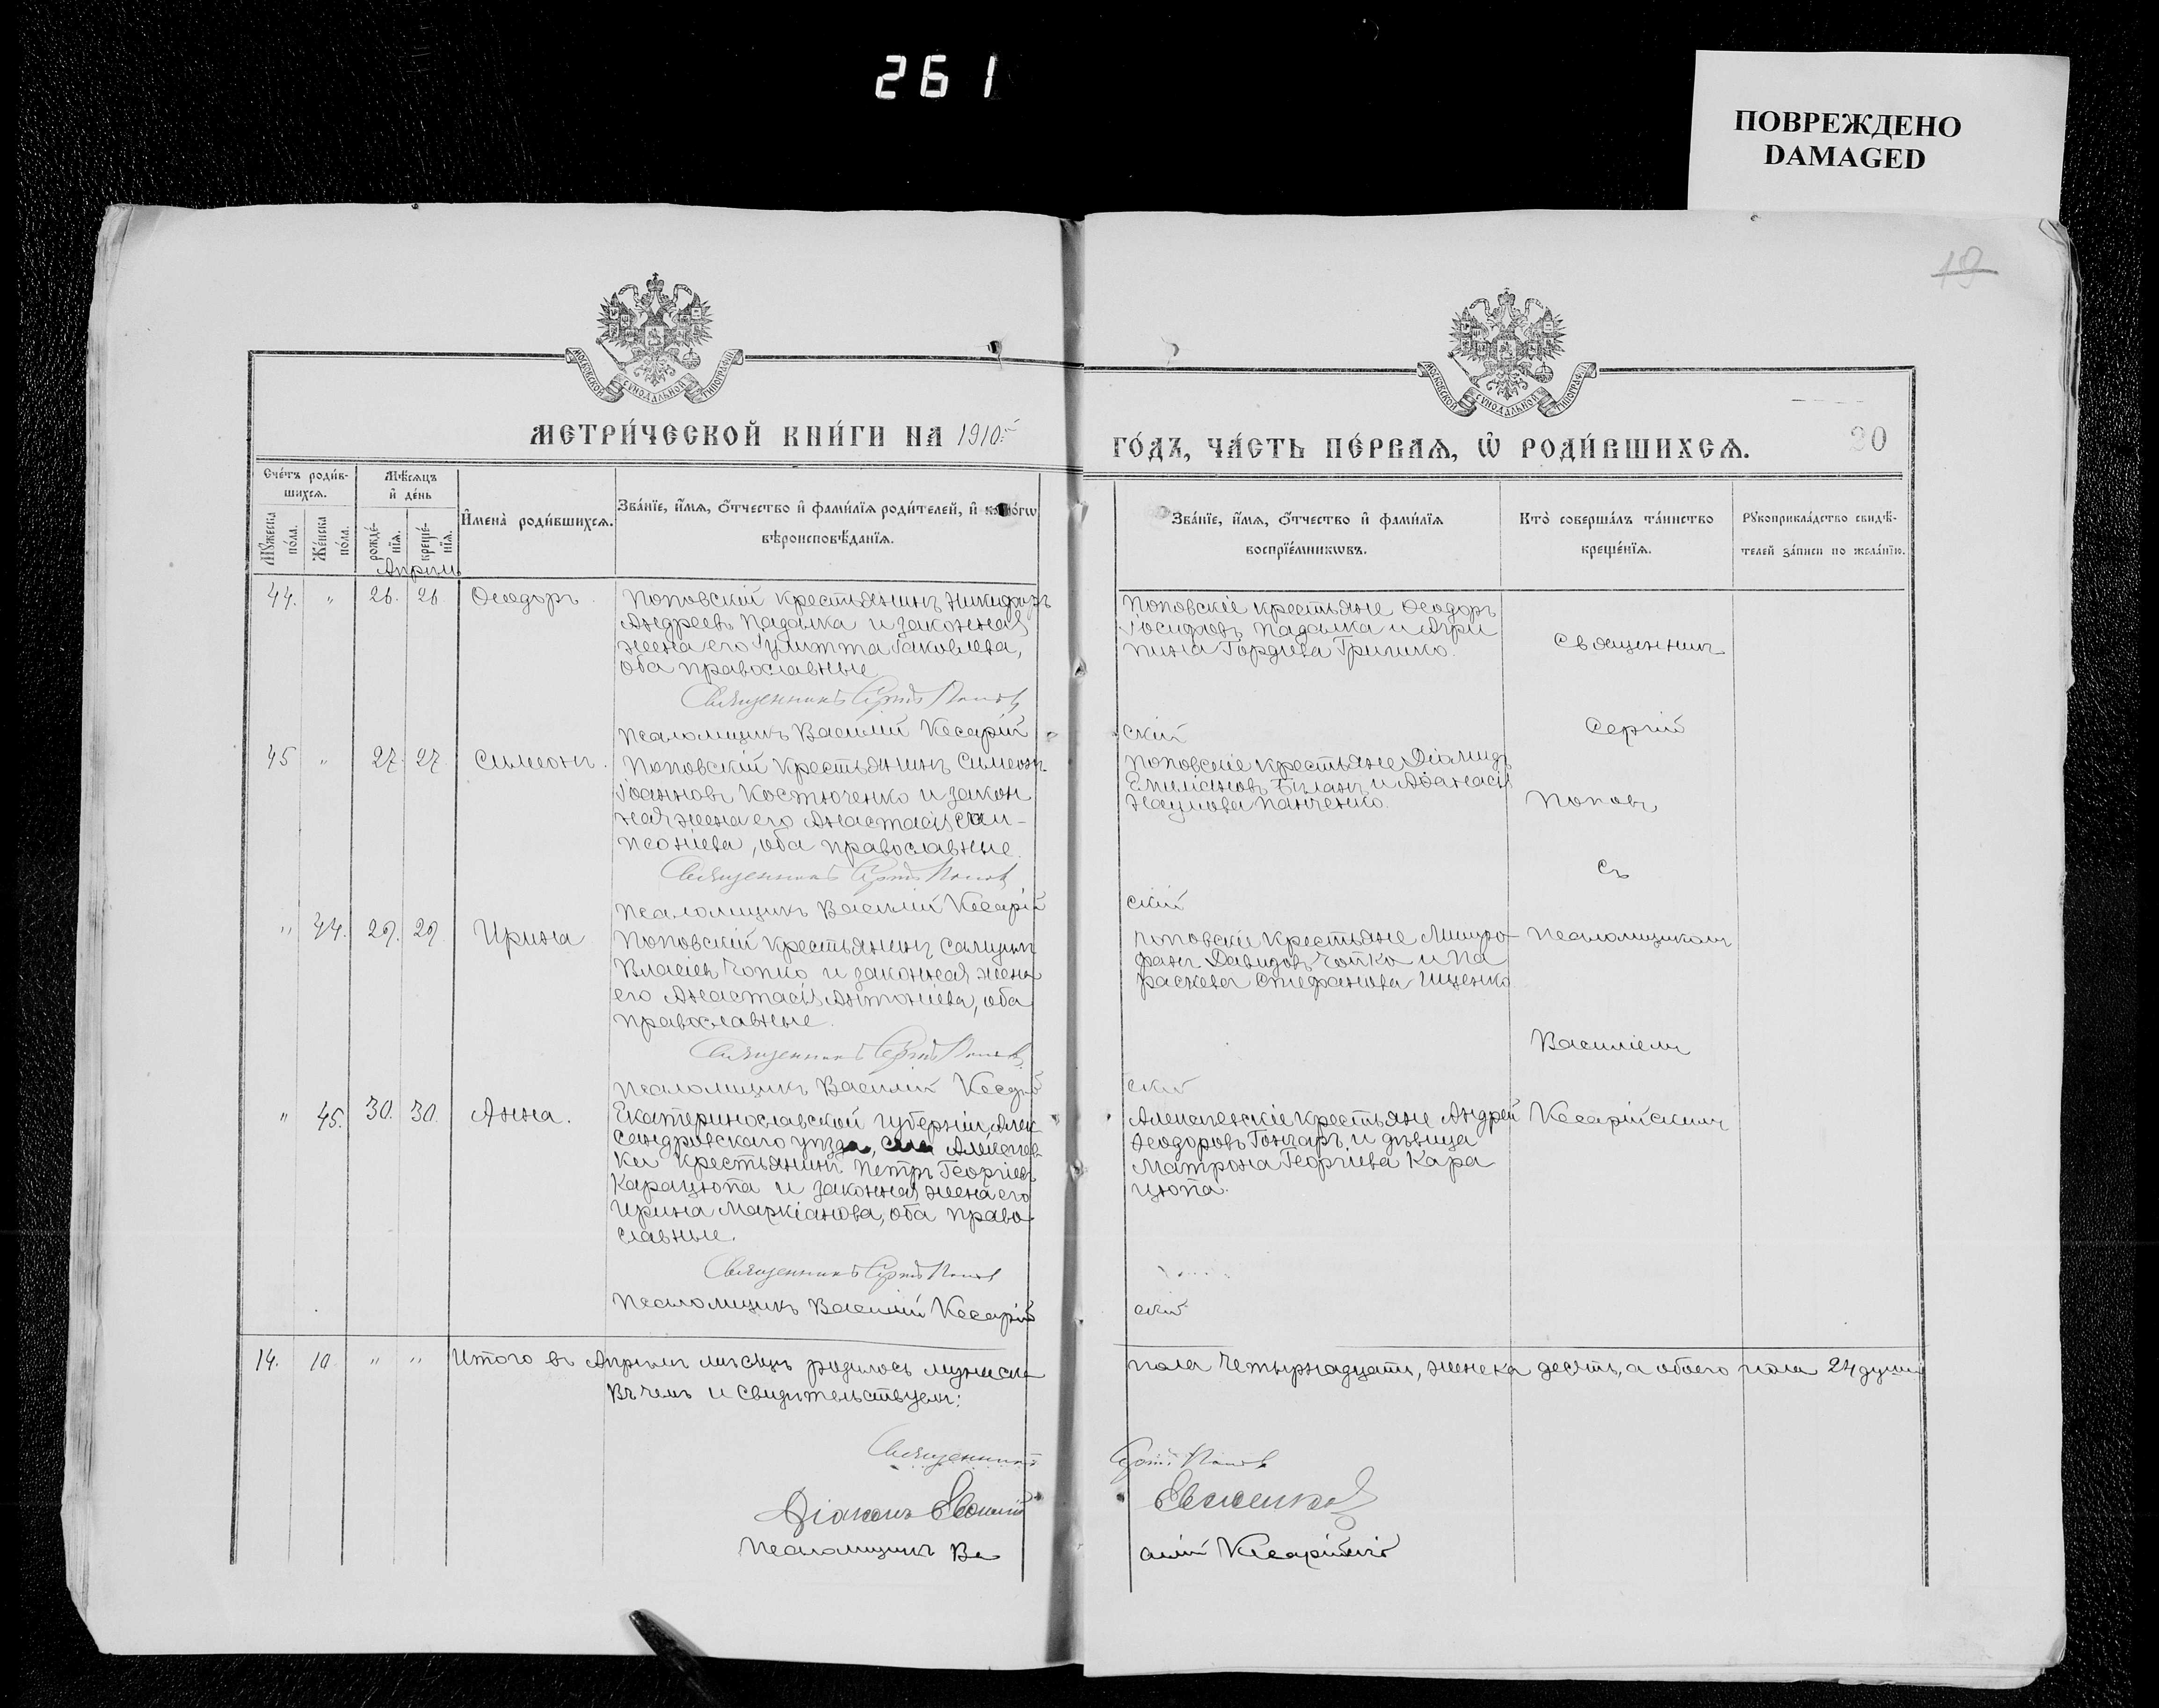 261
ПОВРЕЖДЕНО
DAMAGED
19
МОСКОВСКОЙ СѴНОДАЛЬНОЙ ТИПОГРАФІИ
МОСКОВСКОЙ СѴНОДАЛЬНОЙ ТИПОГРАФІИ
МЕТРИ́ЧЕСКОЙ КНИ́ГИ НА 1910
ГО́ДЪ, ЧА́СТЬ ПЕ́РВАѦ, Ѡ҆ РОДИ́ВШИХСѦ.
20
Сче́тъ роди́в-
шихсѧ.
Мꙋ́жеска
по́ла.
Же́нска
по́ла.
Мѣ́сѧцъ
и҆ де́нь
рожде́-
нїѧ.
креще́-
нїѧ.
И҆мена̀ роди́вшихсѧ.
Зва́нїе, и҆́мѧ, ѻ҆́тчество и҆ фами́лїѧ роди́телей, и҆ ко́гѡ
вѣроисповѣ́данїѧ.
Зва́нїе, и҆́мѧ, ѻ҆́тчество и҆ фами́лїѧ
воспрїе́мникѡвъ.
Кто̀ соверша́лъ та́инство
креще́нїѧ.
Рꙋкоприкла́дство свидѣ́-
телей за́писи по жела́нїю.
Апрѣль
44. " 26. 26 Ѳеодоръ.
Поповскій крестьянинъ Никифоръ
Андреевъ Падалка и законная
жена его Іулитта Іаковлева,
оба православные
Священникъ Сергій Поповъ
Псаломщикъ Василій Кесарій
Поповскіе крестьяне Ѳеодоръ
Іосифовъ Падалка и Агри
пина Гордіева Гришко.
скій
Священникъ
Сергій
45 " 27. 27. Симеонъ.
Поповскій крестьянинъ Симеонъ
Іоанновъ Костюченко и закон
ная жена его Анастасія Сам-
псоніева, оба православные.
Священникъ Сергій Поповъ
Псаломщикъ Василій Кесарій
Поповскіе крестьяне Діомидъ
Емиліановъ Біланъ и Аѳанасія
Наумова Панченко.
скій
Поповъ
съ
" 44. 29. 29 Ирина
Поповскій крестьянинъ
Власіевъ Чопко и законная жена
его Анастасія Антоніева, оба
православные.
Священникъ Сергій Поповъ
Псаломщикъ Василій Кесарій
Поповскіе крестьяне Митро-
фанъ Давидовъ Чопко и Па
раскева Стефанова Ищенко
скій
псаломщикомъ
Василіемъ
" 45. 30. 30. Анна.
Екатеринославской губерніи Алек
сандровскаго уѣзда, села Алексѣев
ки крестьянинъ Петръ Георгіевъ
Карацюпа и законная жена его
Ирина Маркіанова, оба право-
славные.
Священникъ Сергій Поповъ
Псаломщикъ Василій Кесарій
Алексѣевскіе крестьяне Андрей
Ѳеодоровъ Гончаръ и дѣвица
Матрона Георгіева Кара
цюпа.
скій
Кесарійскимъ
14. 10. " " Итого въ Апрѣлѣ мѣсяцѣ родилось мужеска
пола четырнадцать, женска десять, а обоего пола 24 души
Въ чемъ и свидѣтельствуемъ:
Священникъ Сергій Поповъ
Діаконъ
Псаломщикъ Ва
силій Кесарійскій